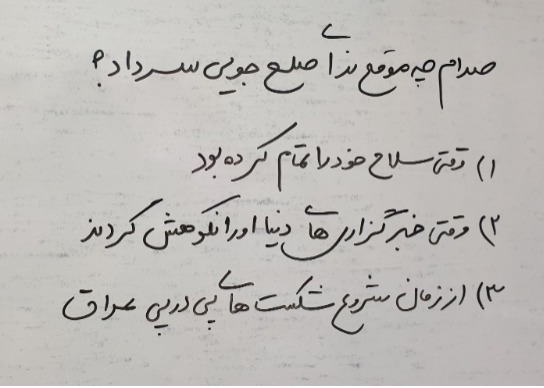 صدام چه موقع ندای صلح جویی سر داد؟
۱) وقتی سلاح خود را تمام کرده بود
۲) وقتی خبرگزاری های دنیا او را نکوهش کردند
۳) از زمان شروع شکست های پی در پی عراق